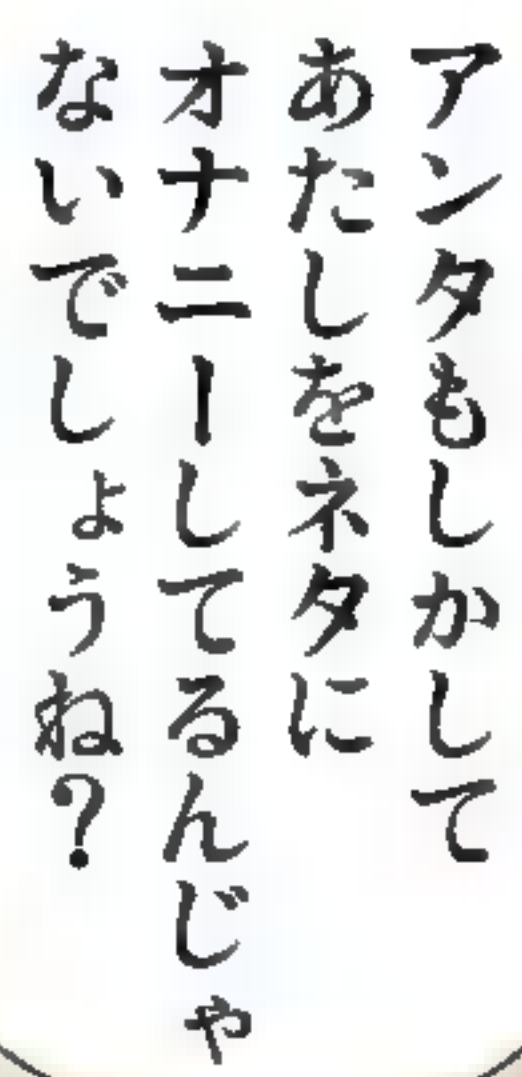 アンタもしかして
あたしをネタに
オナニーしてるんじゃ
ないでしょうね?